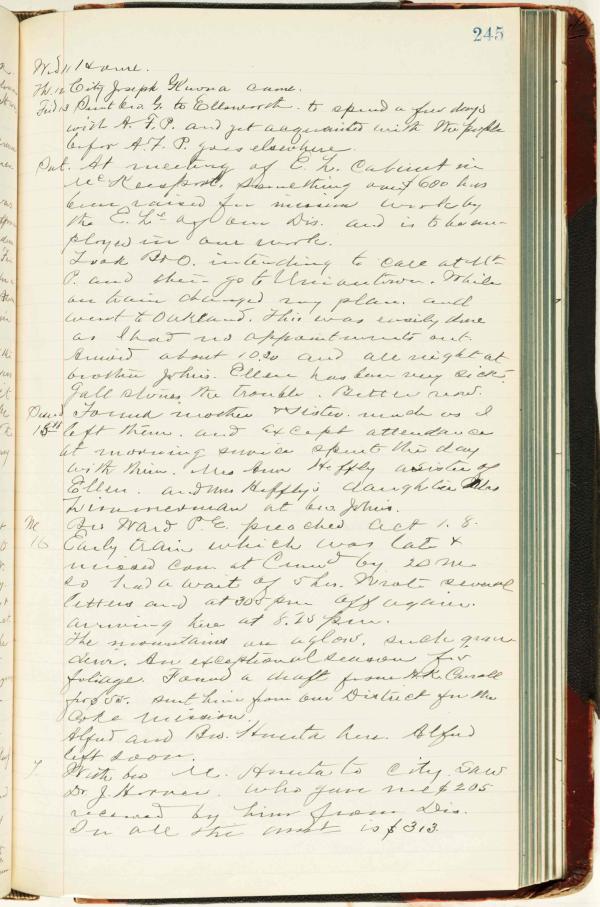 245
Wed 11 Home.
Th. 12 City Joseph came.
Frid 13 Sent Geo G. to Ellsworth to spend a few days
with A. F. P. and get acquainted with the people
befor A. F. P. goes elsewhere.
Sat. At meeting of E. L. Cabinet in
McKeesport. Something over $600 has
been raised for mission work by
the E. Ls of our Dis. and is to be em-
ployed in our work.
Took B&O. intending to call at Mt
P. and then go to Uniontown. While
on train changed my plan and
went to Oakland. This was easily done
as I had no appointments out.
Arrived about 10.30 and all night at
brother John's. Ellen has been very sick.
Gall stones the trouble. Better now.
Found mother & sister much as I
15th left them. and except attendance
at morning service spent the day
with them. Mrs Ann Heffly a sister of
Ellen. and Mrs Heffly's daughter Mrs
Zimmerman at bro. John's.
Bro Ward P. E. preached Act 1. 8.
16 Early train which was late &
missed con. at Cumd by 20 m.
so had a wait of 5 hrs. Wrote several
letters and at 305 pm off again.
arriving here at 8.25 pm.
The mountains are aglow. such gran-
deur. An exceptional season for
foliage. Found a draft from H. K. Carroll
for $55. sent him from our District for the
Coke Mission.
Alfred and Bro. here. Alfred
left soon.
7 With bro to City. Saw
Dr. J. Horner. who gave me $205
received by him from Dis.
In all the amt is $313.